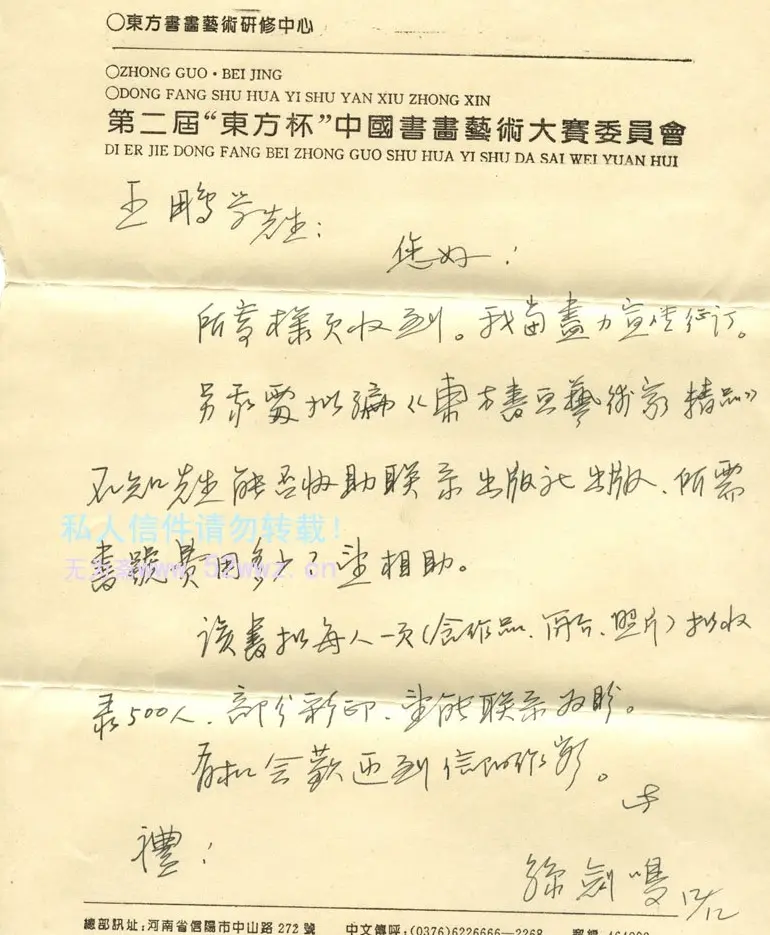 ○東方書畫藝術研修中心
○ZHONG GUO·BEI JING
○DONG FANG SHU HUA YI SHU YAN XIU ZHONG XIN
第二屆“東方杯”中國書畫藝術大賽委員會
DI ER JIE DONG FANG BEI ZHONG GUO SHU HUA YI SHU DA SAI WEI YUAN HUI
王鵬学先生：
您好！
所寄樣页收到。我当盡力宣传征订。
另我處拟編《東方書画藝術家精品》
不知先生能否协助联系出版社出版、所需
私人信件请勿转载！
書號費用多少？望相助。
www.52wwz.cn
该書拟每人一页（含作品、简介、照片）拟收
录500人、部分彩印、望能联系为盼。
有机会歡迎到信阳作客。
此
禮！
徐劍鳴 12/12
總部訊址：河南省信陽市中山路272號 中文傳呼：(0376)6226666—2268